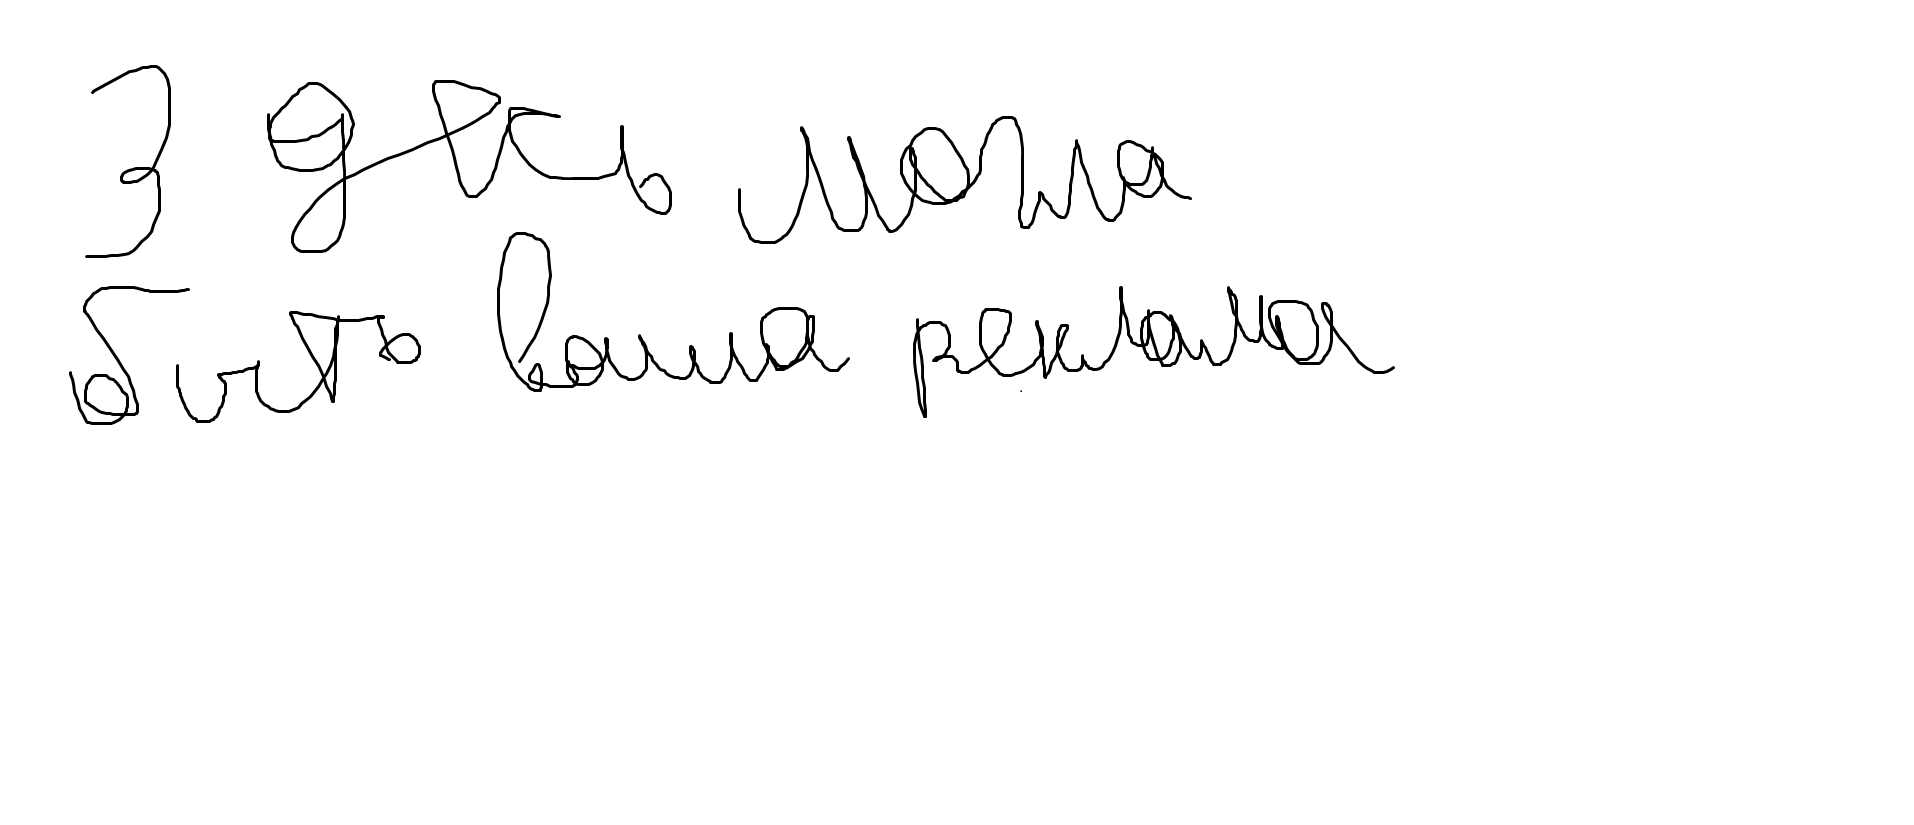 Здесь могла
быть ваша реклама